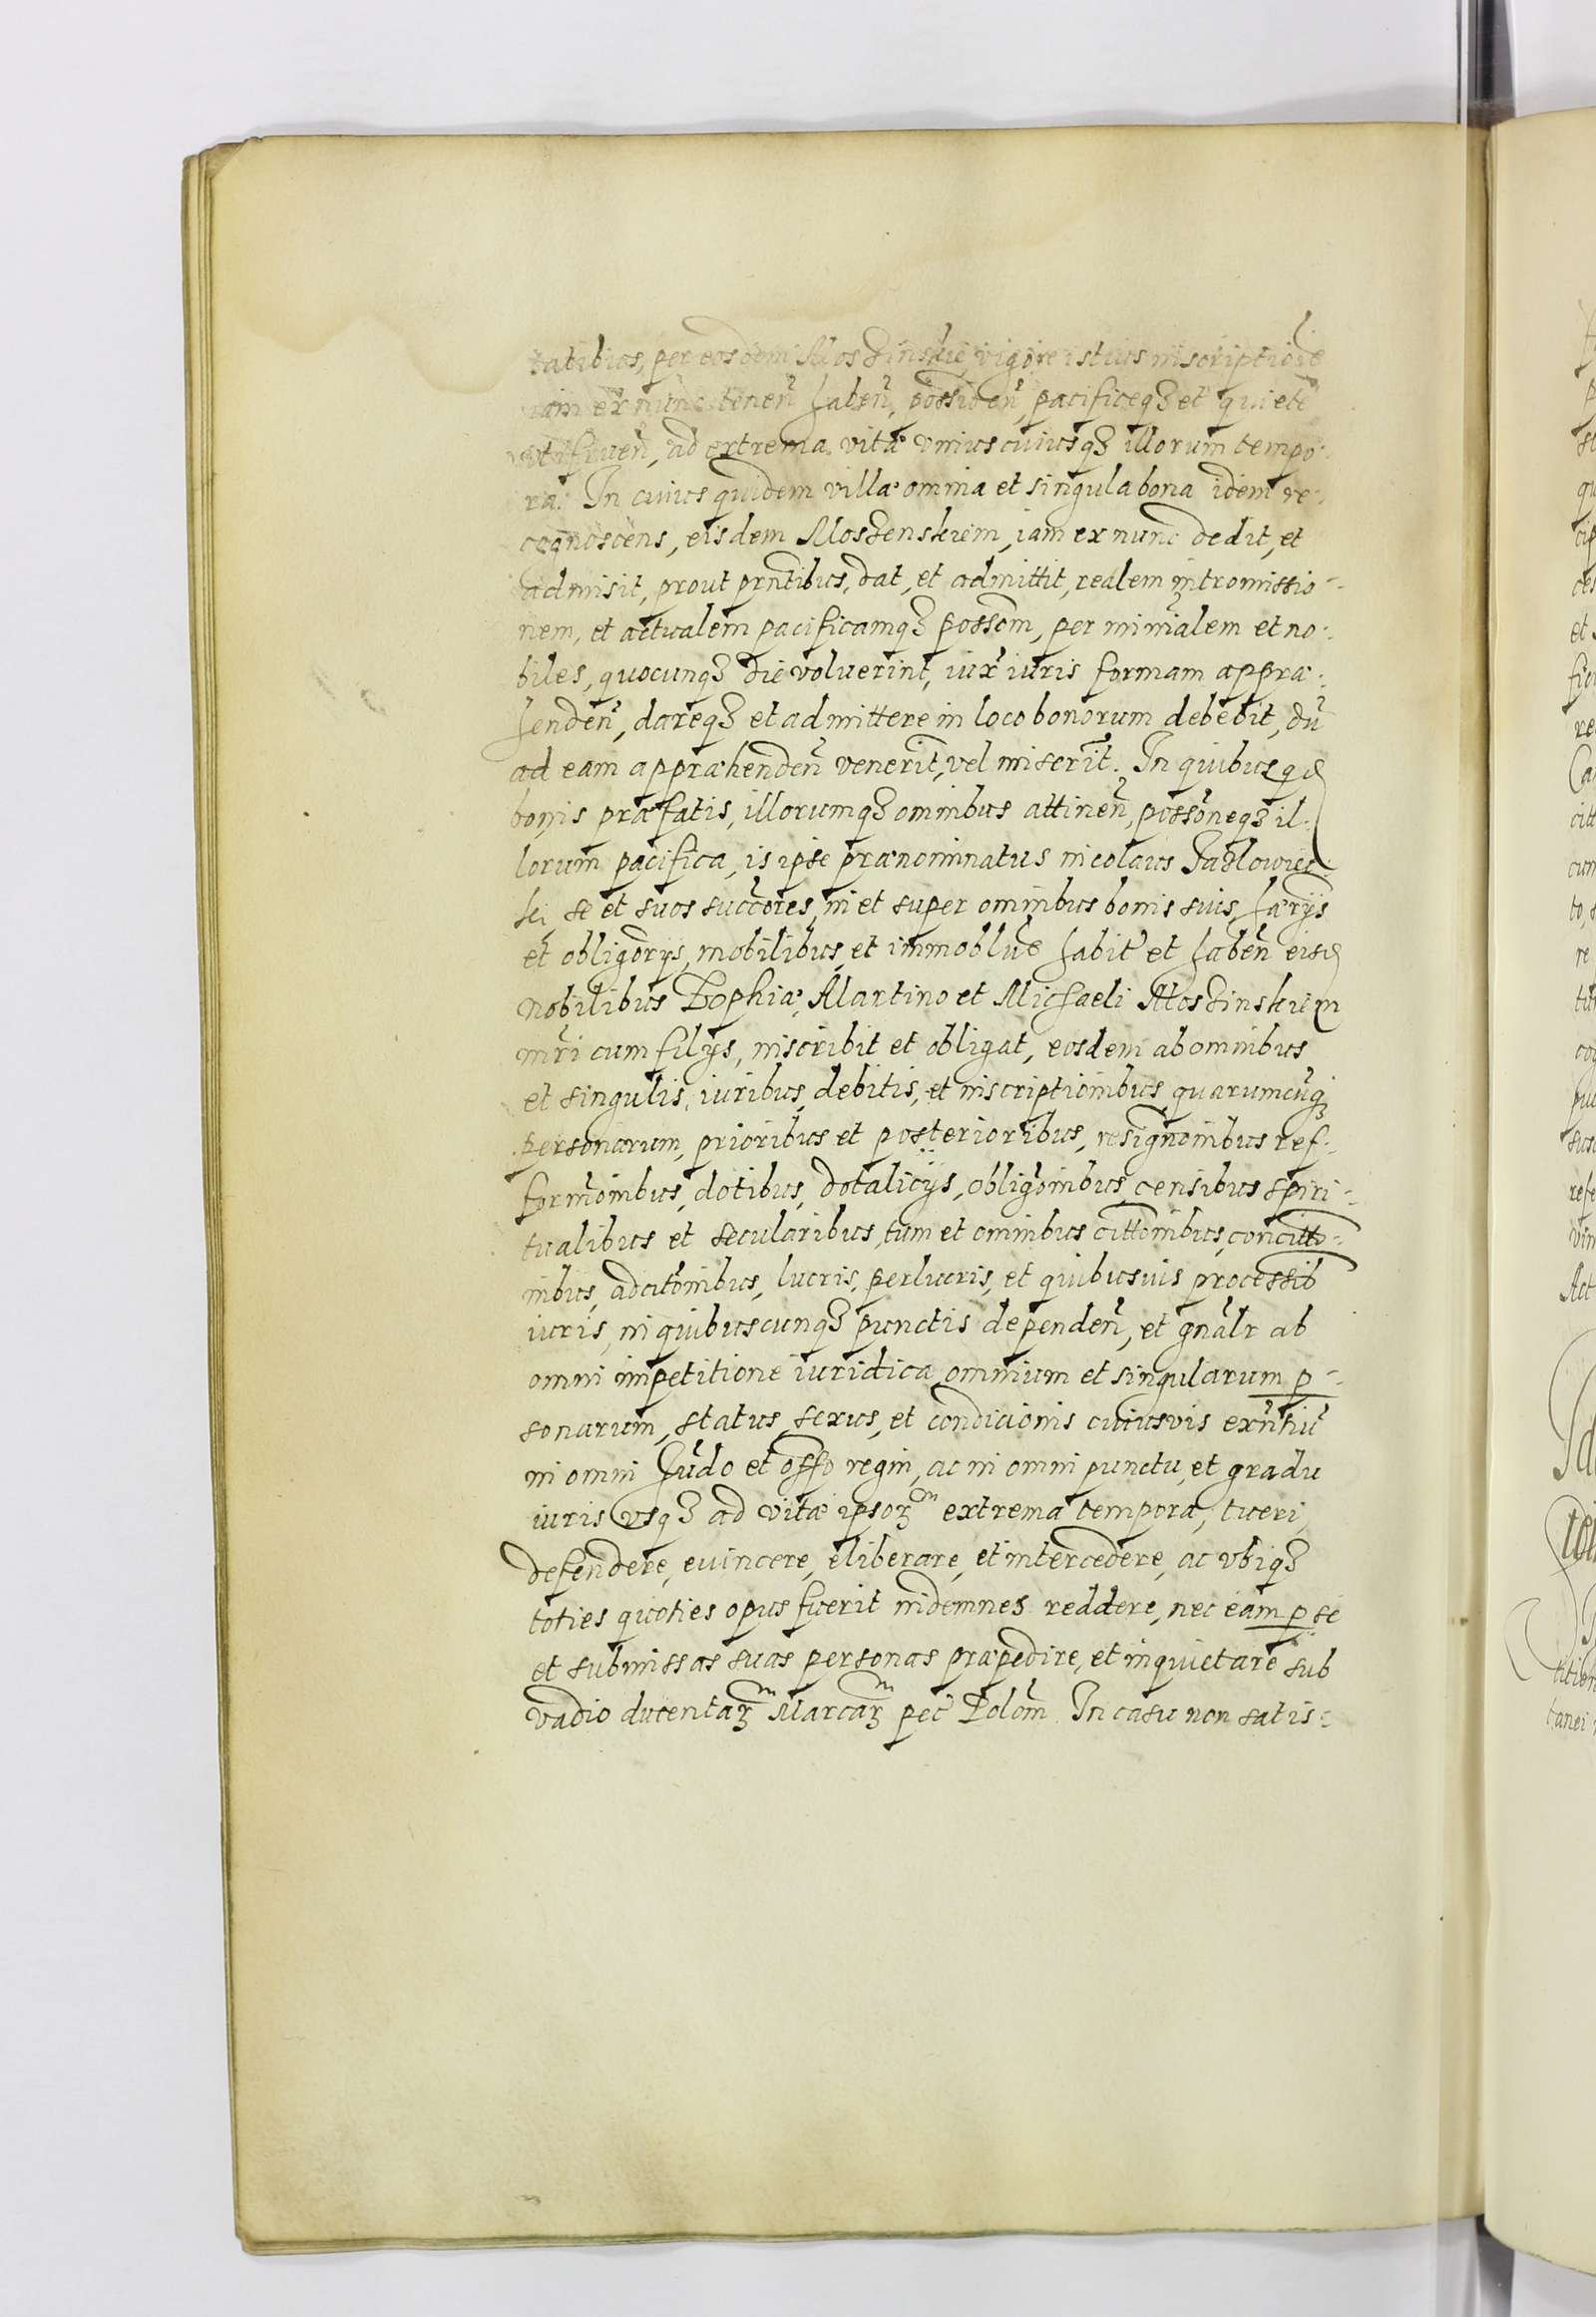 tatibus, per eosdem Mosdinskie vigore istius inscriptione
iam ex nunc tenen̄ haben̄, possiden̄, pacificeqȝ et quiete
utifruen̄, ad extrema vitæ vniuscuiusqȝ illorum tempo-
ra. In cuius quidem villæ omnia et singula bona idem re-
cognoscens, eisdem Mosdenskiem, iam ex nunc dedit, et
admisit, prout prn̄tibus, dat, et admittit, realem intromissio-
nem, et actualem pacificamqȝ possom̄, per minialem et no-
biles, quocunqȝ die voluerint, iux̄ iuris formam appræ-
henden̄, dareqȝ et admittere in loco bonorum debebit, dū
ad eam appræhenden̄ venerit, vel miserit. In quibus qd
bonis præfatis, illorumqȝ omnibus attinen̄, possōneqȝ il-
lorum pacifica, is ipse prænominatus nicolaus Jazlowiec
ki se et suos succōres, in et super omnibus bonis suis, hærȳs
et obligōrys, mobilibus, et immoblūs habit̄ et haben̄ eisd
nobilibus Zophiæ, Martino et Michaeli Mosdinskiem
mr̄i cum filÿs, inscribit et obligat, eosdem ab omnibus
et singulis, iuribus, debitis, et inscriptionibus quarumcūqȝ
personarum, prioribus et posterioribus, resignōnibus ref-
formōnibus, dotibus, dotalicÿs, obligōnibus censibus spiri-
tualibus et secularibus, tum et omnibus cittōnibus, concitto-
nibus, adcitōnibus, lucris, perlucris, et quibusuis processib
iuris, in quibuscunqȝ punctis dependen̄, et gnāl̄r ab
omni impetitione iuridica, omnium et singularum p-
sonarum, status, sexus, et condicionis cuiusvis exn̄tiū
in omni Jūdo et offo regni, ac in omni punctu, et gradu
iuris vsqȝ ad vitæ ipsoȝm extrema tempora, tueri,
defendere, euincere, eliberare, et intercedere, ac vbiqȝ
toties quoties opus fuerit indemnes reddere, nec eam p se
et submissas suas personas præpedire, et inquietare sub
vadio ducentaȝm Marcaȝm pec̄ Polōm. In casu non satis-